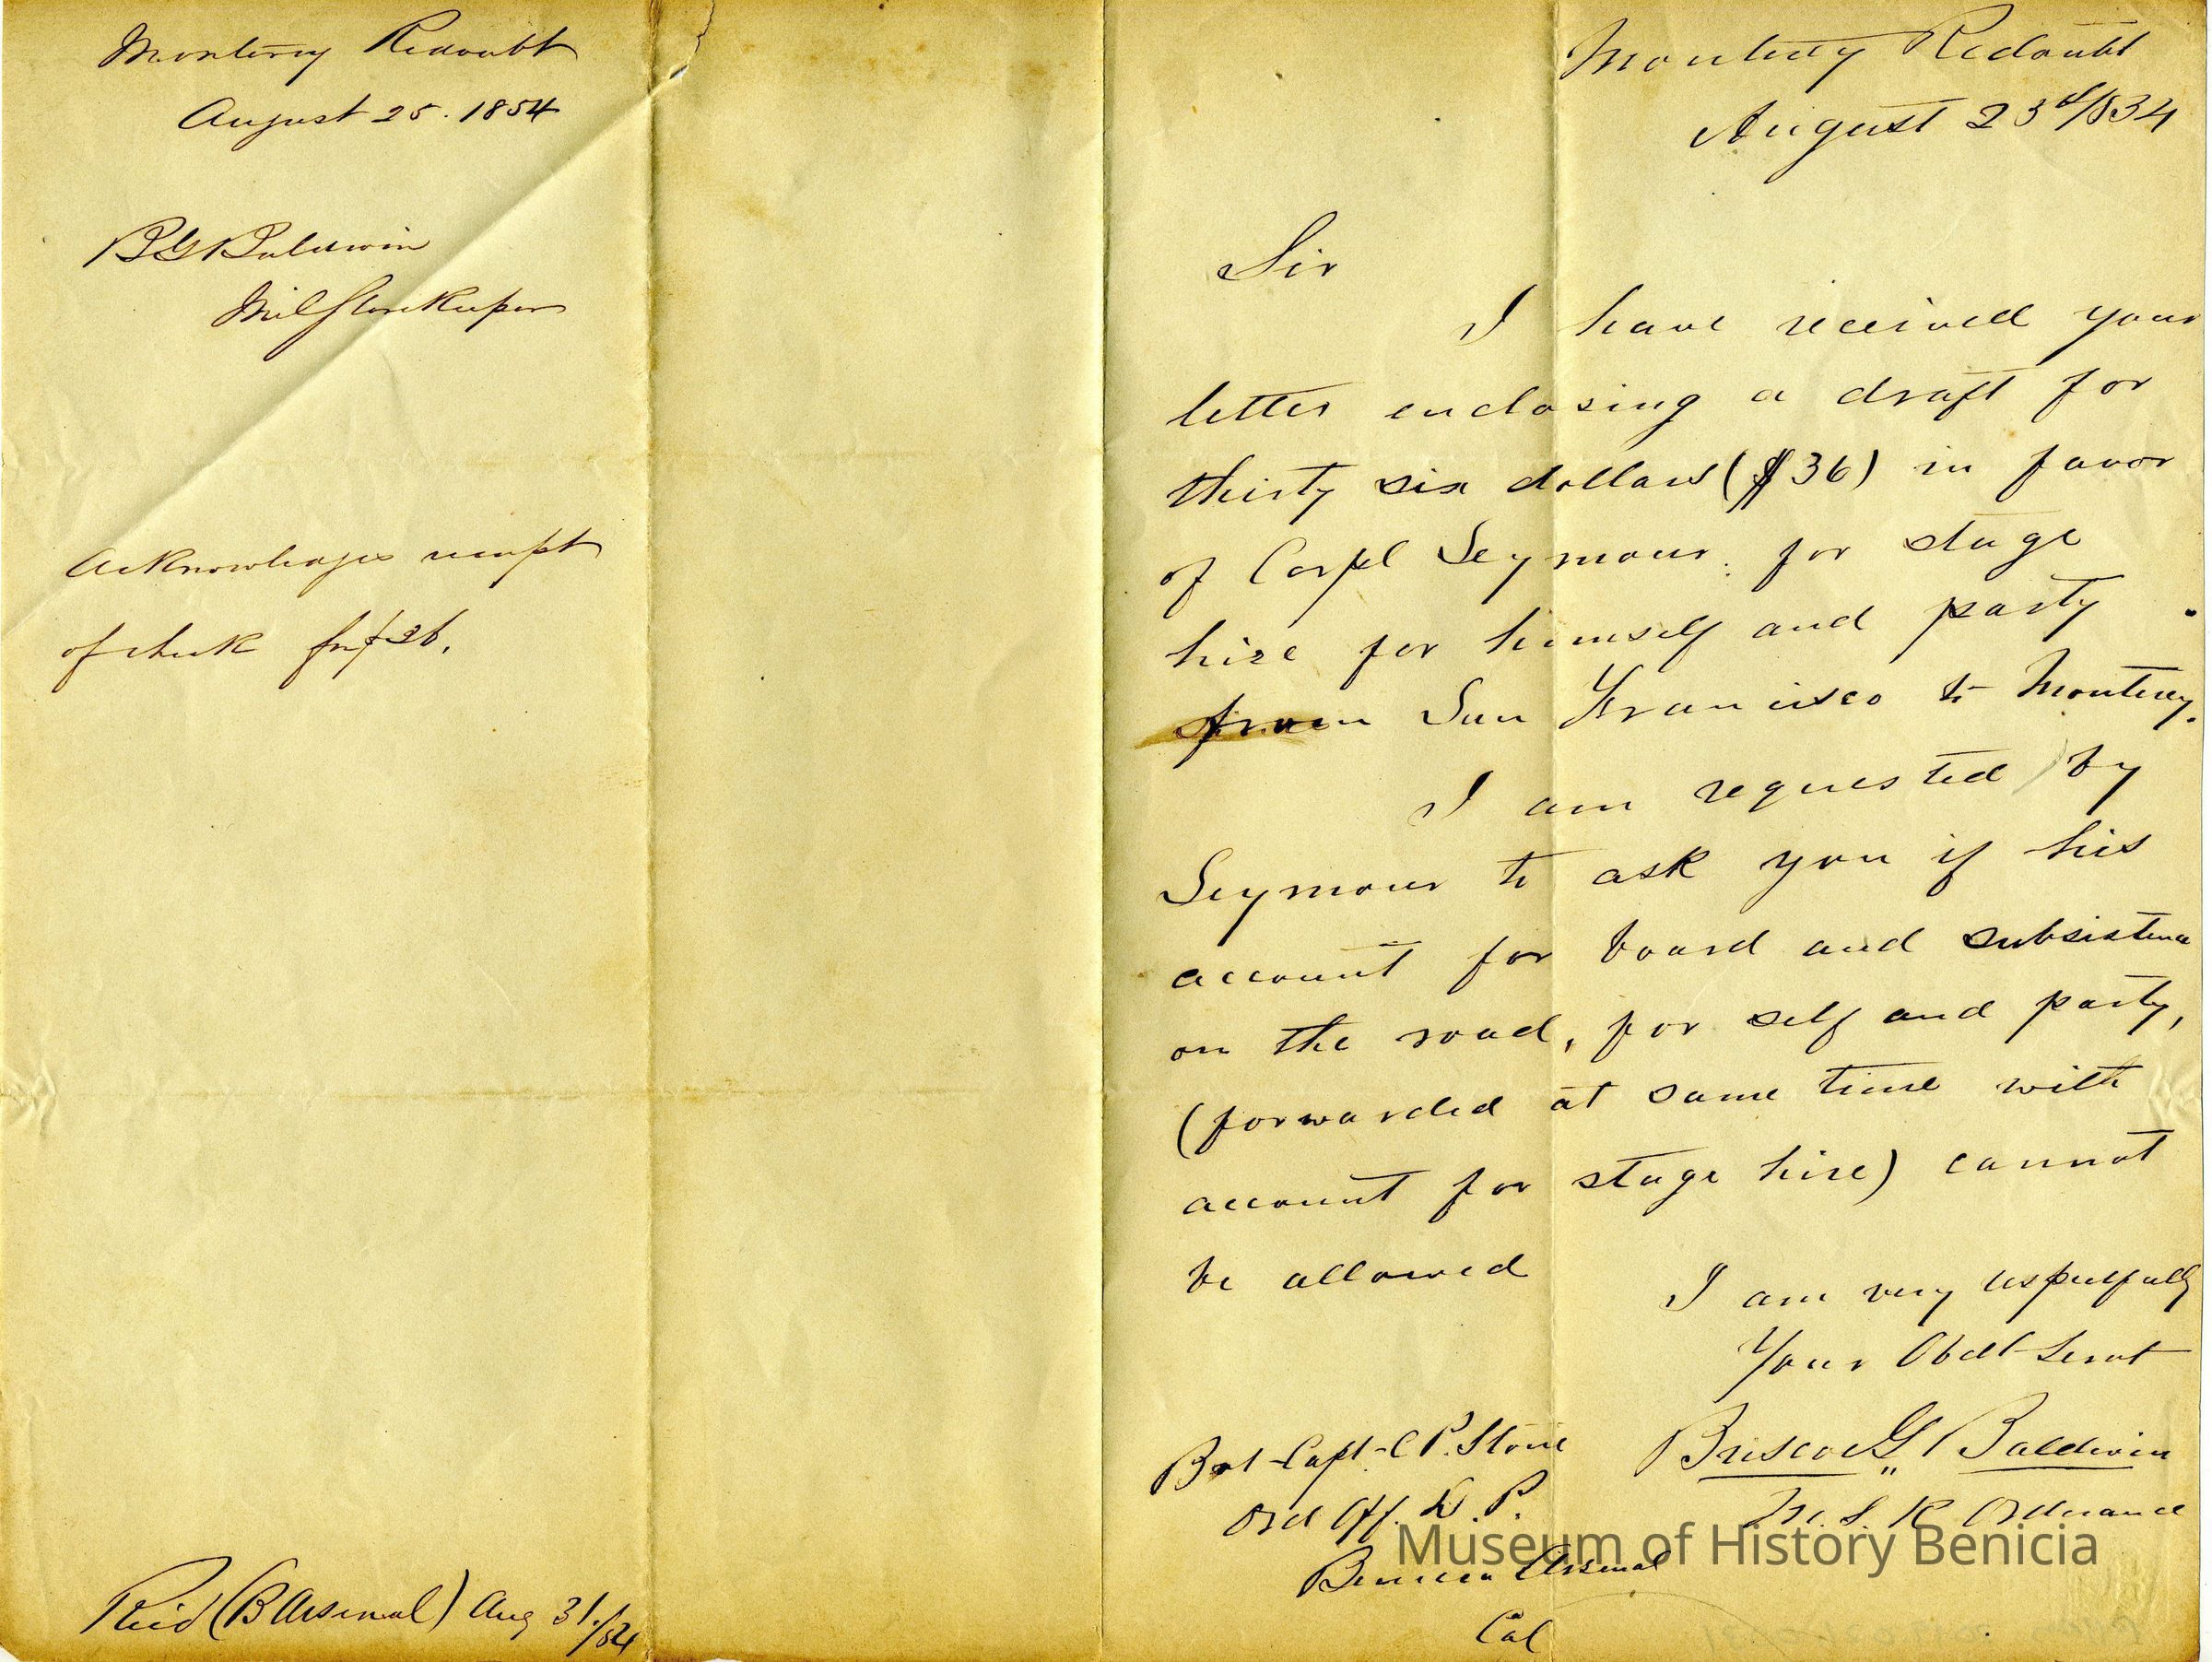 Monterey Redoubt
August 25. 1854
B G Baldwin
Mil Storekeeper
Acknowledges receipt
of check for $36.
Recd (B Arsenal) Aug 31./54
Monterey Redoubt
August 23d/854
Sir
I have received your
letter enclosing a draft for
thirty six dollars ($36) in favor
of Corpl Seymour. for stage
hire for himself and party
from San Francisco to Monterey.
I am requested by
Seymour to ask you if his
account for board and subsistence
on the road, for self and party,
(forwarded at same time with
account for stage hire) cannot
be allowed
I am very respectfully
Your Obdt Servt
Briscoe G Baldwin
M. S. K Ordnance
Bvt Capt C P. Stone
Ord Off. D. P.
Benicia Arsenal
Cal
Museum of History Benicia